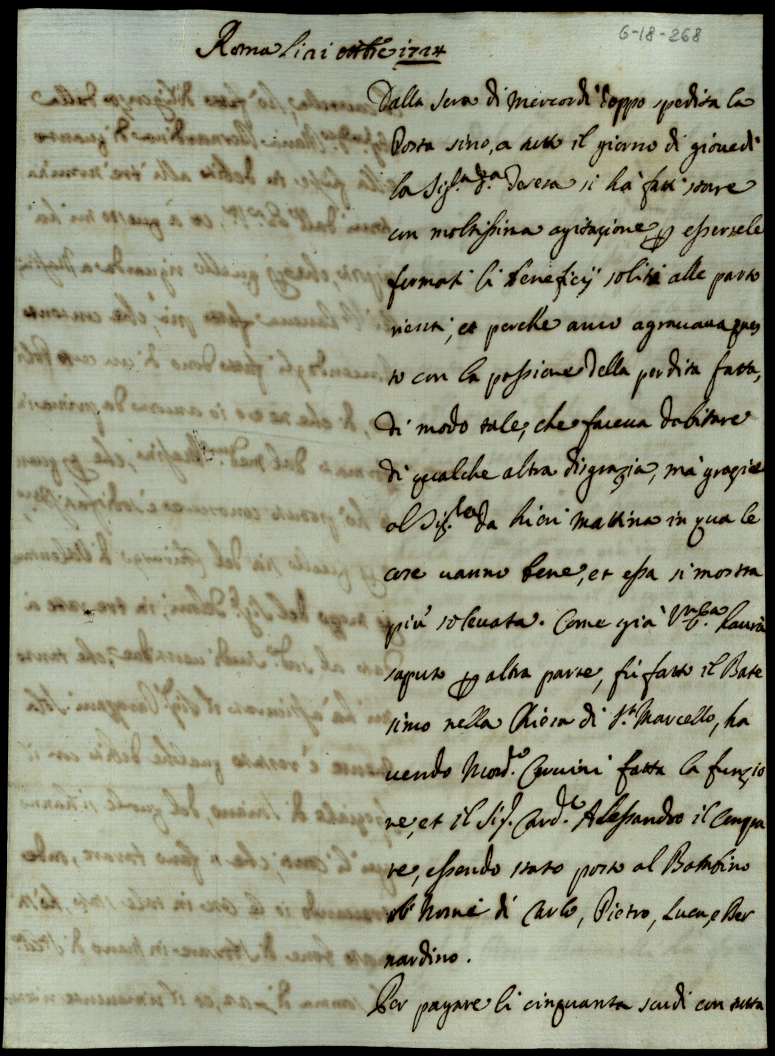 6-18-268
Roma li 21 ottbre 1724
Dalla sera di Mercordì doppo spedita la
Posta sino, a tutto il giorno di giovedì
la Sig.ra D.a Teresa si hà fatti stare
con moltissima agitazione p essersele
fermati li beneficij soliti alle parto
rienti, et perche anco agravava ques
to con la passione della perdita fatta,
di modo tale, che faceva dubitare
di qualche altra disgrazia, mà grazie
al Sig.re da hieri mattina in qua le
cose vanno bene, et essa si mostra
più solevata. Come già V. haverà
saputo p altra parte, fù fatto il Bate
simo nella Chiesa di S. Marcello, ha
vendo Mons.r Cervini fatta la funzio
ne, et il Sig. Card.le Alessandro il Compa
re, essendo stato posto al Bambino
Nomi di Carlo, Pietro, Luca, e Ber
nardino.
Per pagare li cinquanta scudi con tutta